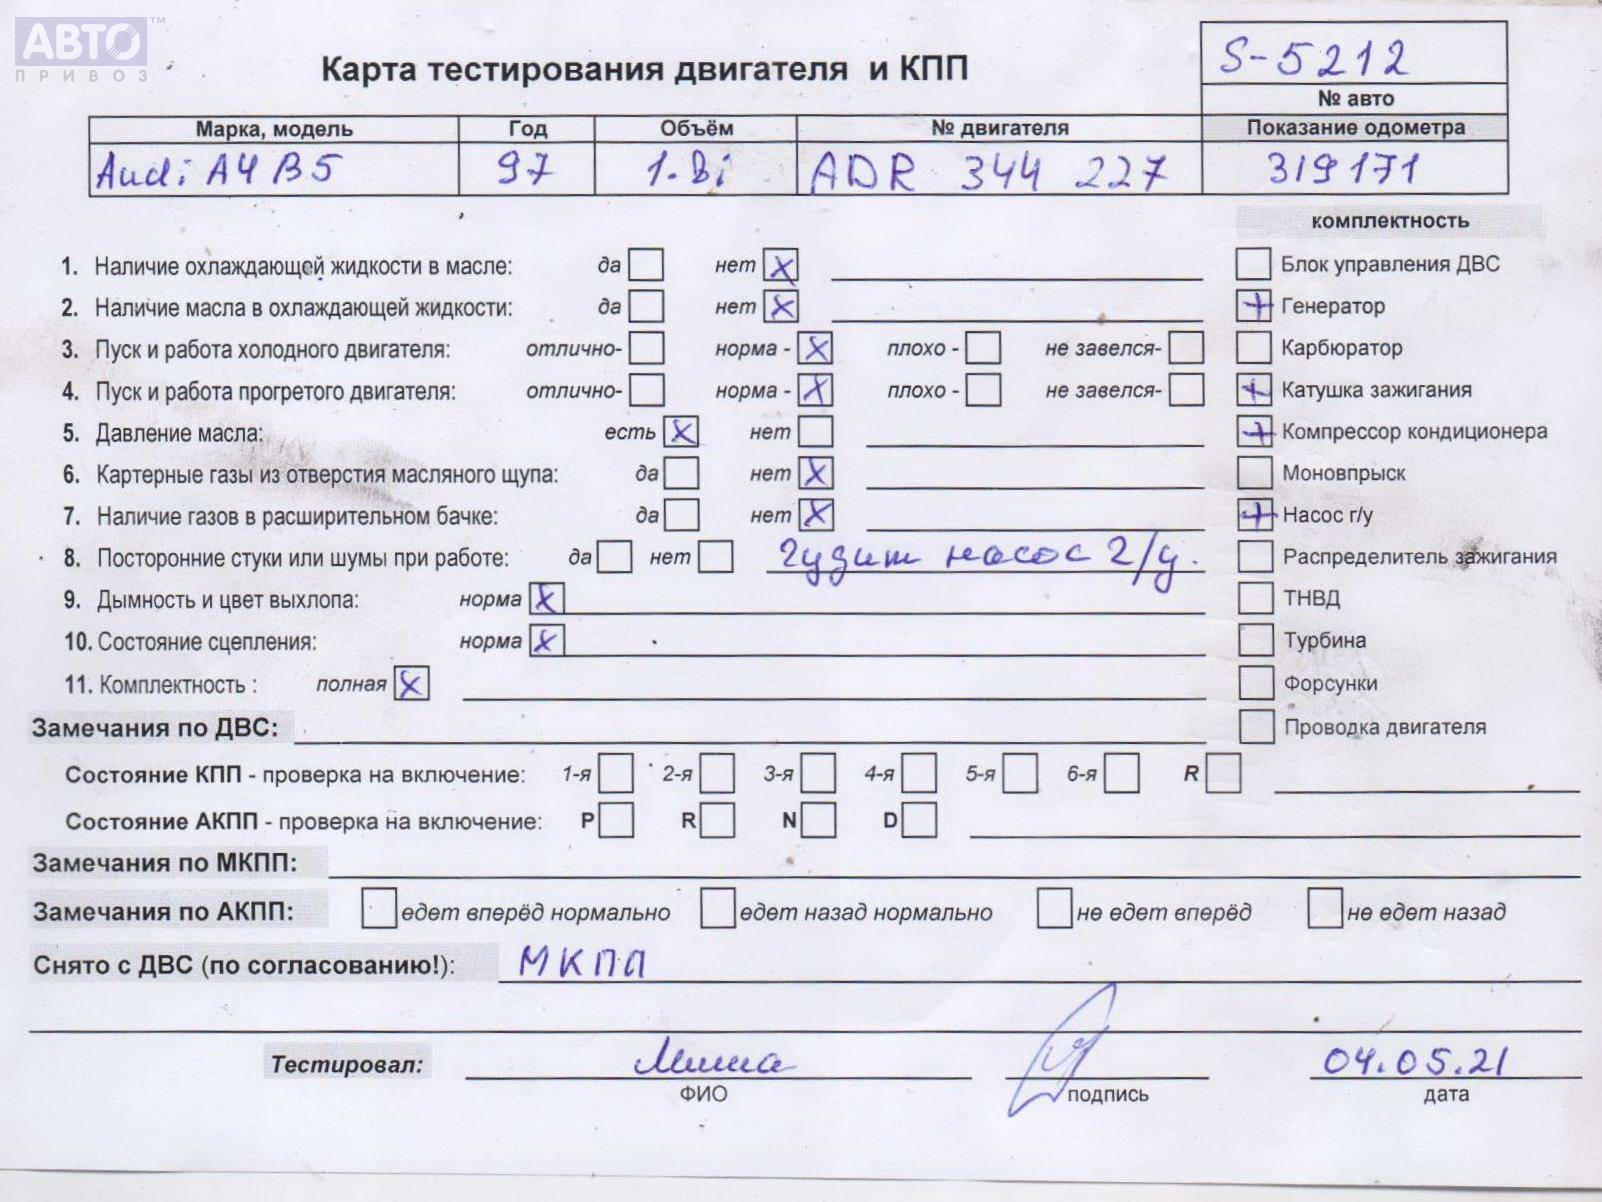 АВТО™
ПРИВОЗ
Карта тестирования двигателя и КПП
S-5212
№ авто
Марка, модель Год Объём № двигателя Показание одометра
Audi A4 B5 97 1.8i ADR 344 227 319171
комплектность
1. Наличие охлаждающей жидкости в масле: да нет X Блок управления ДВС
2. Наличие масла в охлаждающей жидкости: да нет X + Генератор
3. Пуск и работа холодного двигателя: отлично- норма - X плохо - не завелся- Карбюратор
4. Пуск и работа прогретого двигателя: отлично- норма - X плохо - не завелся- + Катушка зажигания
5. Давление масла: есть X нет + Компрессор кондиционера
6. Картерные газы из отверстия масляного щупа: да нет X Моновпрыск
7. Наличие газов в расширительном бачке: да нет X + Насос г/у
8. Посторонние стуки или шумы при работе: да нет гудит насос г/у. Распределитель зажигания
9. Дымность и цвет выхлопа: норма X ТНВД
10. Состояние сцепления: норма X Турбина
11. Комплектность : полная X Форсунки
Замечания по ДВС: Проводка двигателя
Состояние КПП - проверка на включение: 1-я 2-я 3-я 4-я 5-я 6-я R
Состояние АКПП - проверка на включение: P R N D
Замечания по МКПП:
Замечания по АКПП: едет вперёд нормально едет назад нормально не едет вперёд не едет назад
Снято с ДВС (по согласованию!): МКПП
Тестировал: Миша 04.05.21
ФИО подпись дата